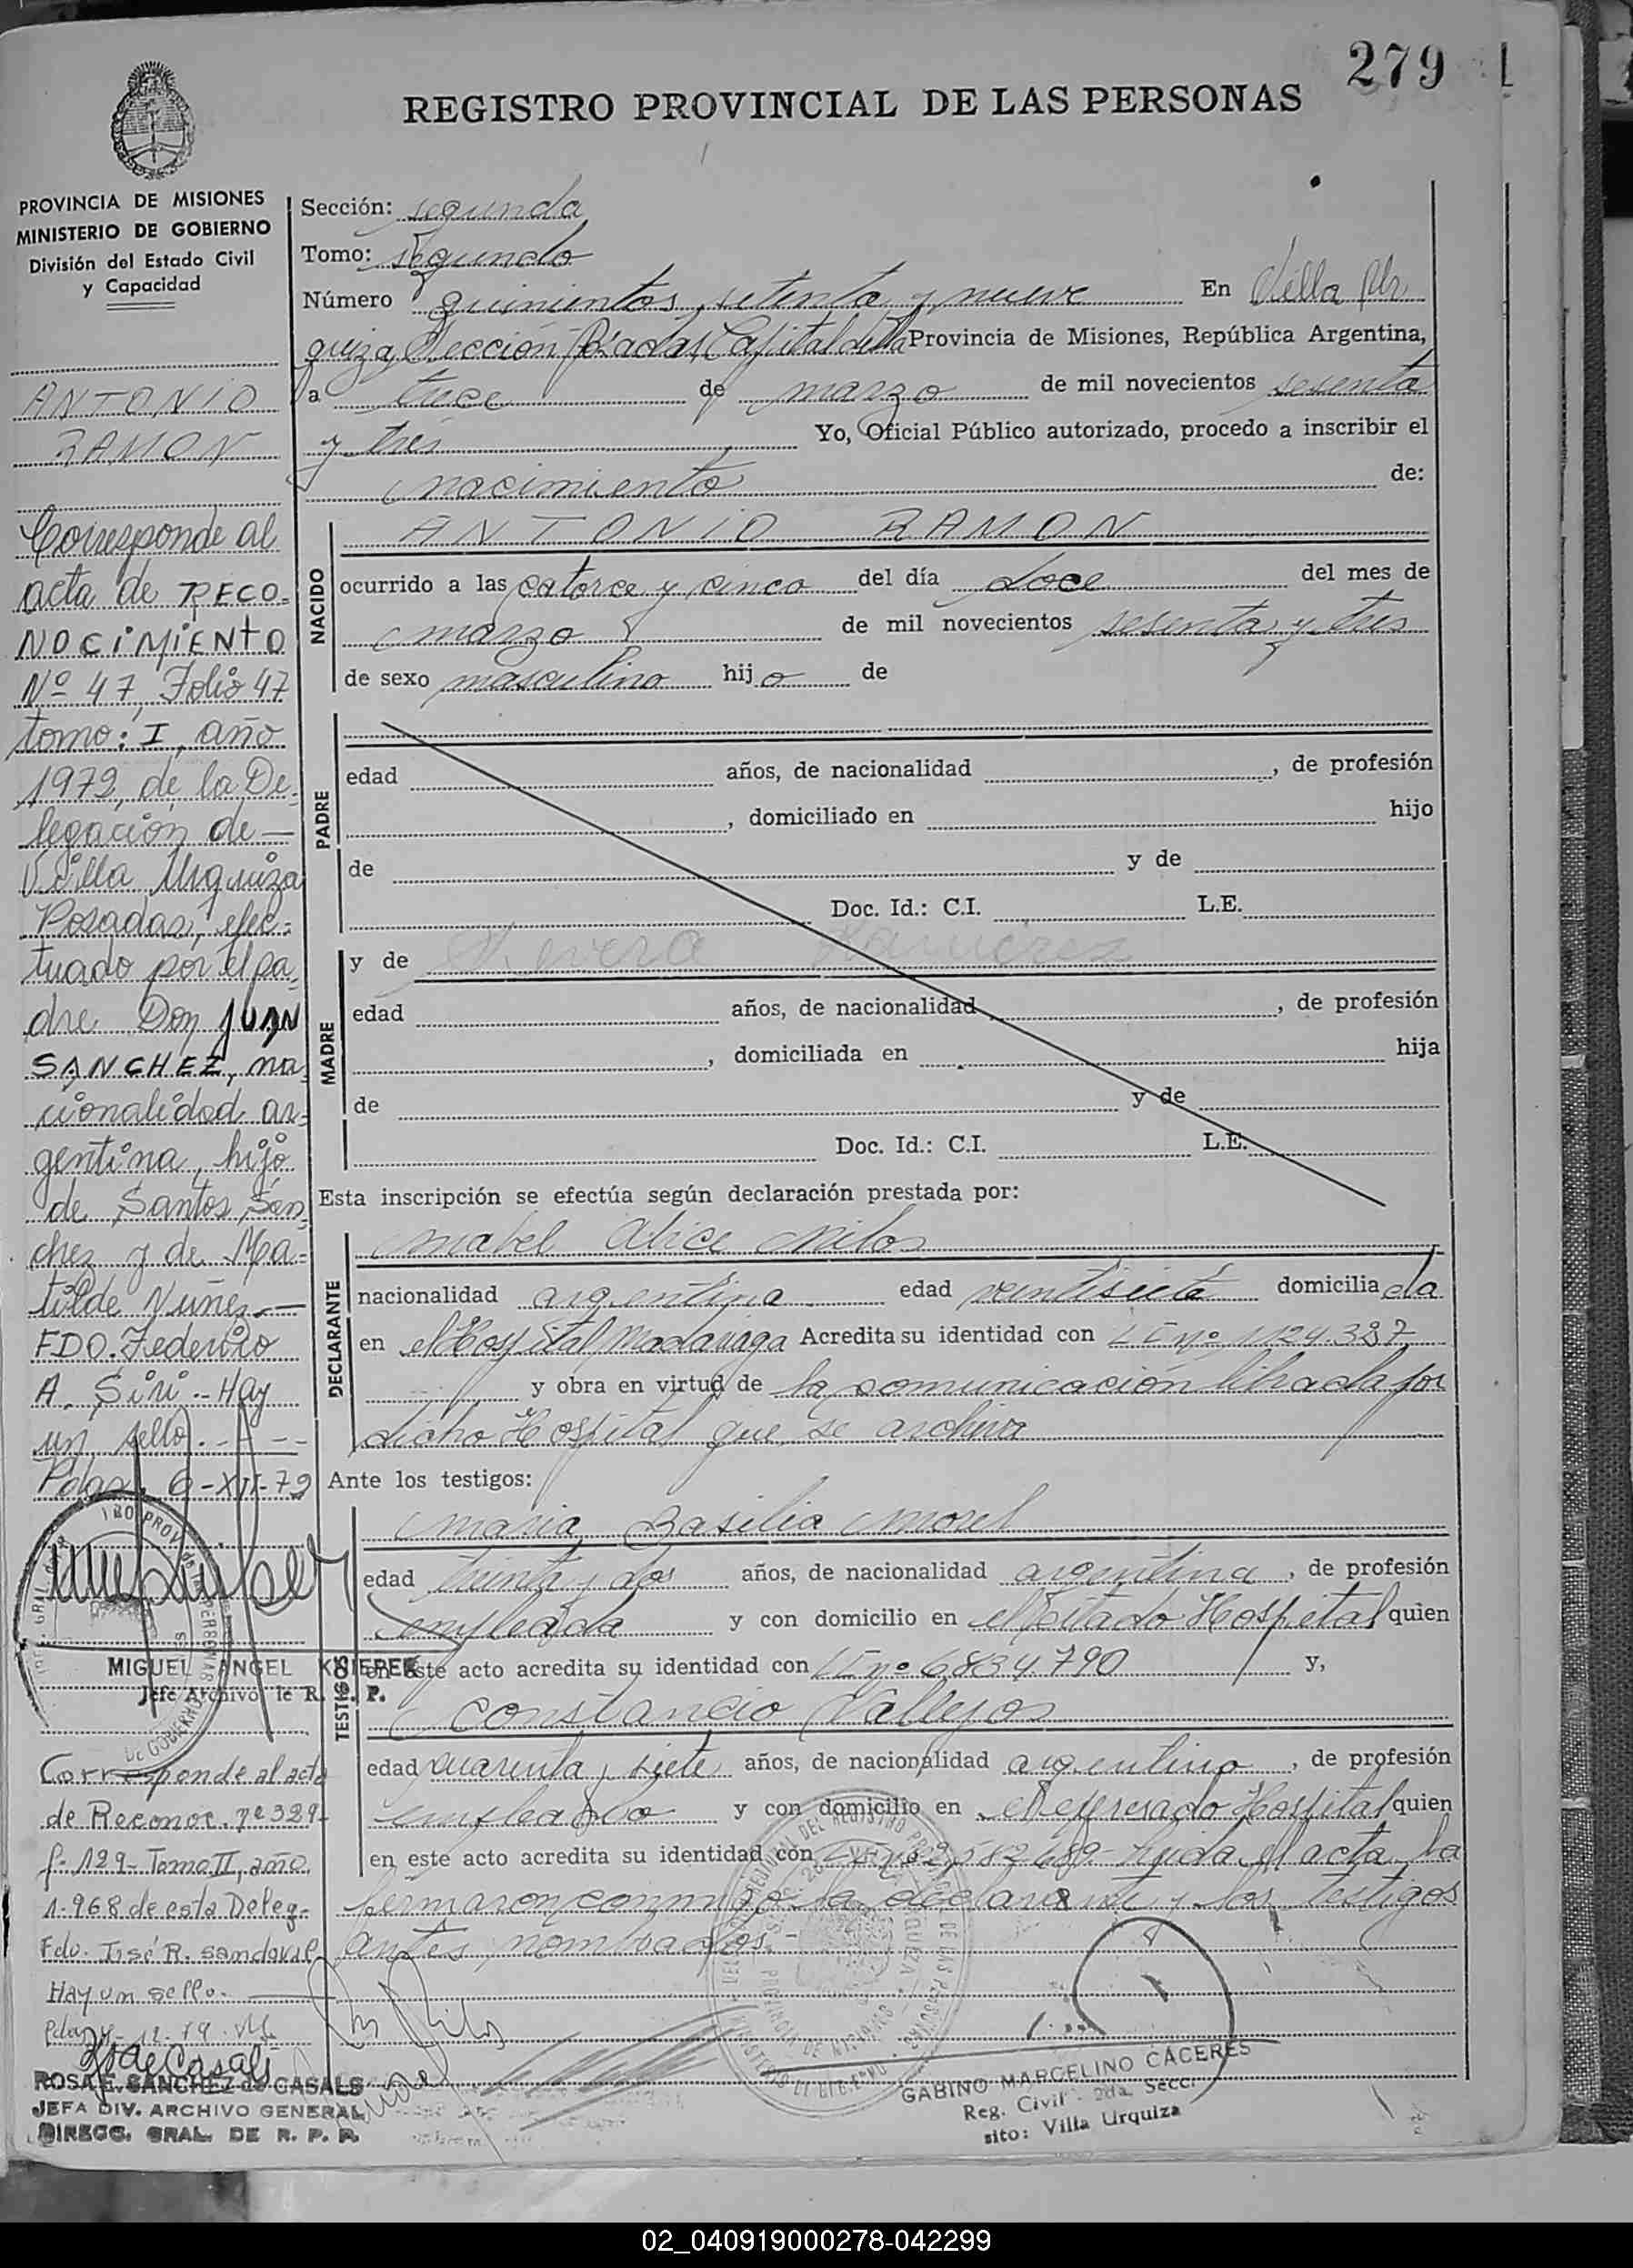 279
REGISTRO PROVINCIAL DE LAS PERSONAS
PROVINCIA DE MISIONES
MINISTERIO DE GOBIERNO
División del Estado Civil
y Capacidad
ANTONIO
RAMON
Corresponde al
acta de RECO-
NOCIMIENTO
Nº 47, Folio 47
tomo: I, año
1972, de la De-
legación de
Villa Urquiza
Posadas, efec-
tuado por el pa-
dre Don JUAN
SANCHEZ, na-
cionalidad ar-
gentina, hijo
de Santos Sán-
chez y de Ma-
tilde Nuñez.-
FDO. Federico
A. Siri.- Hay
un sello.- - -
Pdas. 6-XII-72
MIGUEL ANGEL
Jefe Archivo de R. P. P.
Corresponde al acta
de Reconoc. nº 329-
f- 129- Tomo II, año
1.968 de esta Deleg-
Fdo. José R. Sandoval
Hay un sello.
ROSA E. SANCHEZ de CASALS
JEFA DIV. ARCHIVO GENERAL
DIRECC. GRAL. DE R. P. P.
Sección: segunda
Tomo: segundo
Número quinientos setenta y nueve En Villa Ur
quiza, Sección Posadas, Capital de la Provincia de Misiones, República Argentina,
a trece de marzo de mil novecientos sesenta
y tres Yo, Oficial Público autorizado, procedo a inscribir el
nacimiento de:
NACIDO
ANTONIO RAMON
ocurrido a las catorce y cinco del día doce del mes de
marzo de mil novecientos sesenta y tres
de sexo masculino hijo de
PADRE
edad años, de nacionalidad , de profesión
, domiciliado en hijo
de y de
Doc. Id.: C.I. L.E.
MADRE
y de Ramirez
edad años, de nacionalidad , de profesión
, domiciliada en hija
de y de
Doc. Id.: C.I. L.E.
Esta inscripción se efectúa según declaración prestada por:
DECLARANTE
Mabel Alice Milos
nacionalidad argentina edad veintisiete domiciliada
en el Hospital Madariaga Acredita su identidad con nº 1124.387
y obra en virtud de la comunicación librada por
dicho Hospital que se archiva
Ante los testigos:
TESTIGOS
Maria Basilia Morel
edad treinta y dos años, de nacionalidad argentina, de profesión
empleada y con domicilio en el citado Hospital quien
en este acto acredita su identidad con nº 6834.790 y,
Constancio Vallejos
edad cuarenta y siete años, de nacionalidad argentino, de profesión
empleado y con domicilio en el expresado Hospital quien
en este acto acredita su identidad con leida el acta la
firmaron conmigo la declarante y los testigos
antes nombrados.-
GABINO MARCELINO CACERES
Reg. Civil 2da. Secc.
sito: Villa Urquiza
02_040919000278-042299